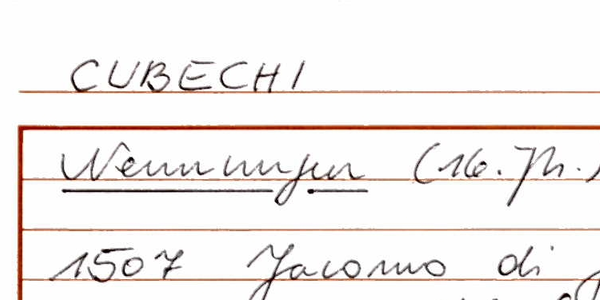 CUBECHI
Nennungen (16. Jh.)
1507 Jacomo di